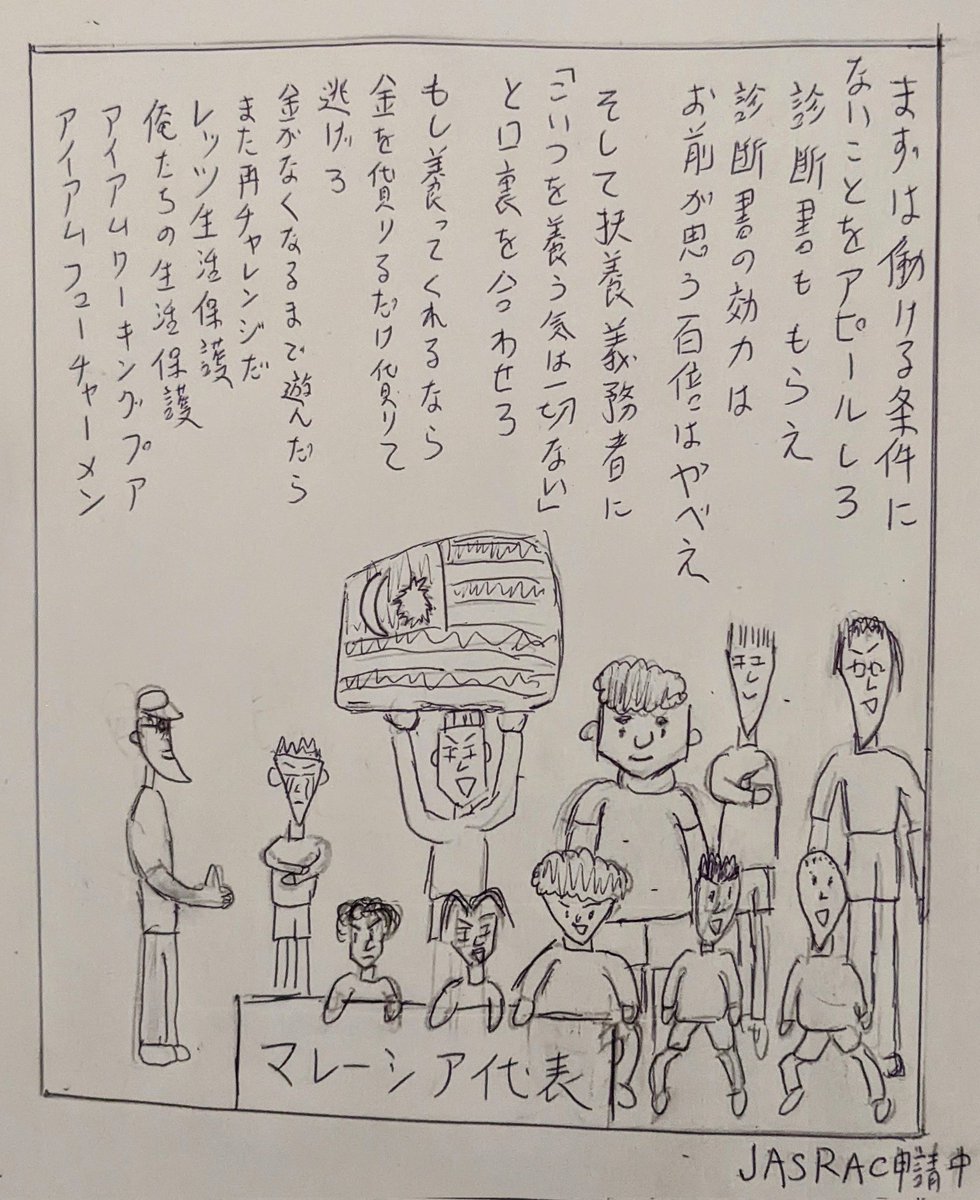 まずは働ける条件に
ないことをアピールしろ
診断書ももらえ
診断書の効力は
お前が思う百倍はやべえ
そして扶養義務者に
「こいつを養う気は一切ない」
と口裏を合わせろ
もし養ってくれるなら
金を借りるだけ借りて
逃げろ
金がなくなるまで遊んだら
また再チャレンジだ
レッツ生活保護
俺たちの生活保護
アイアムワーキングプア
アイアムフューチャーメン
マレーシア代表
JASRAC申請中